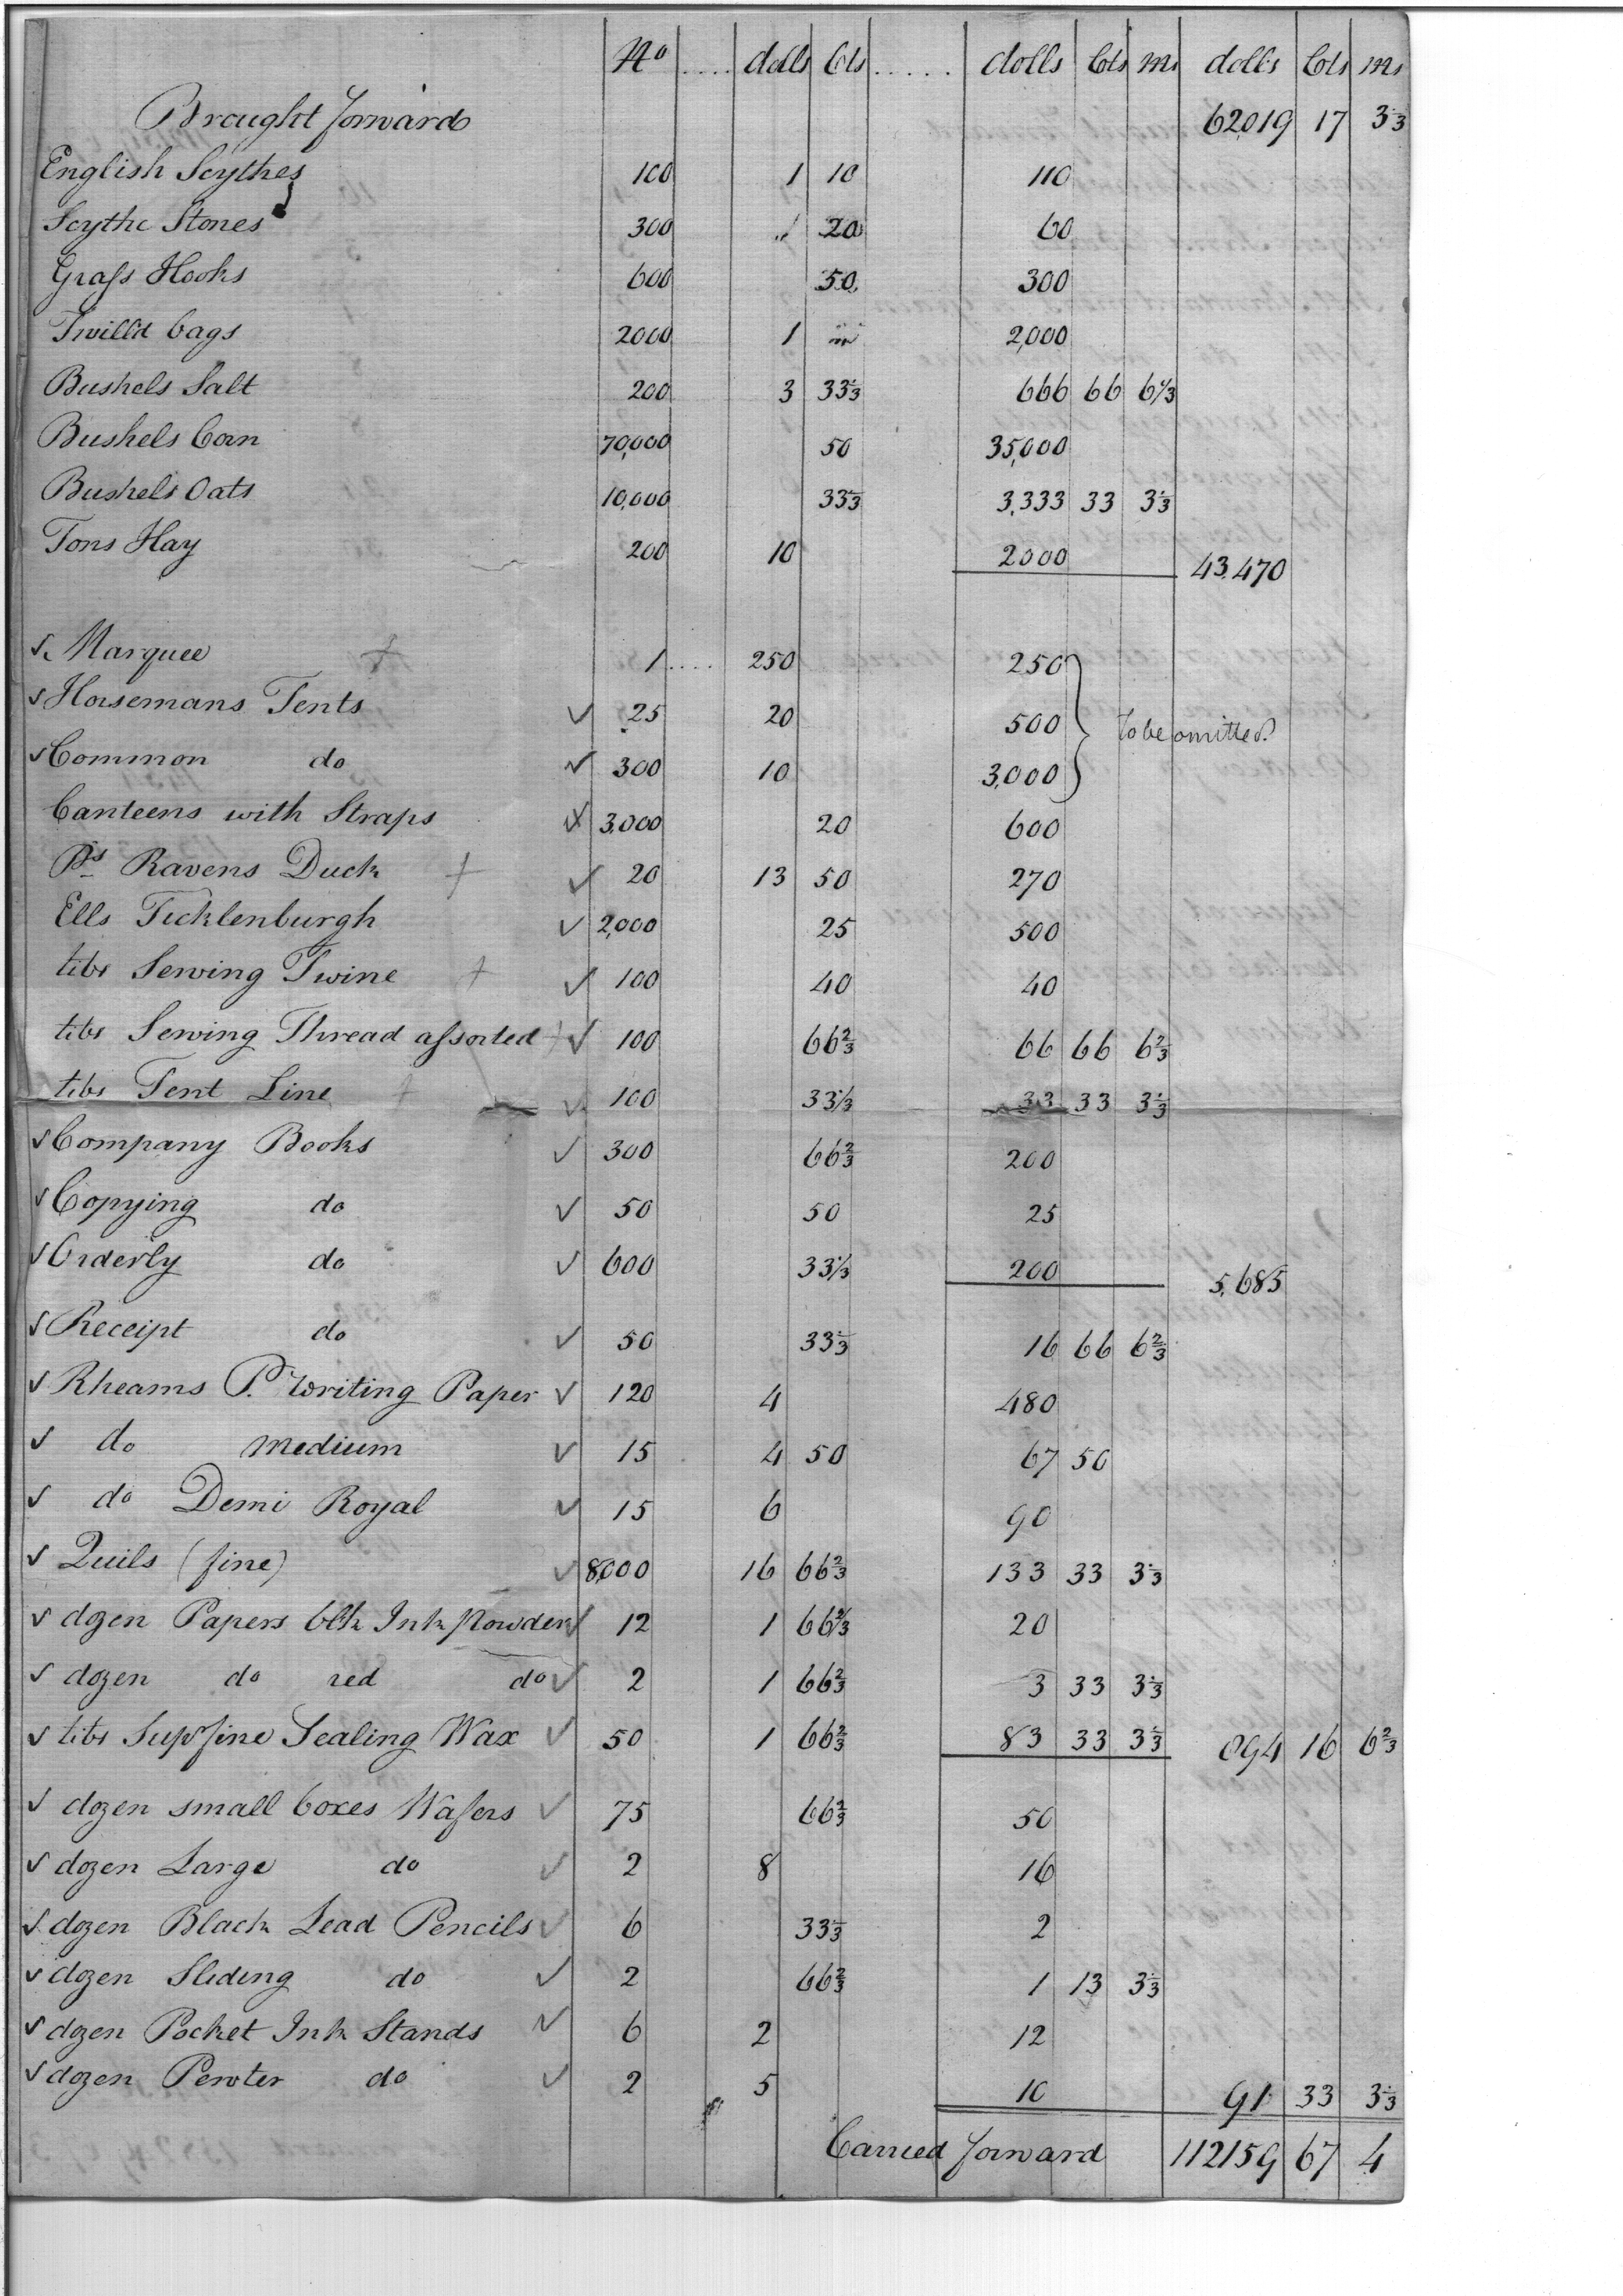 No .... dolls Cts ..... dolls Cts Ms dolls Cts Ms
Brought forward 62019 17 3 1/3
English Scythes 100 1 10 110
Scythe Stones 300 " 20 60
Grass Hooks 600 50 300
Twilld bags 2000 1 " 2,000
Bushels Salt 200 3 33 1/3 666 66 6 2/3
Bushels Corn 70,000 50 35,000
Bushels Oats 10,000 33 1/3 3,333 33 3 1/3
Tons Hay 200 10 2000 43,470
✓ Marquee + 1 .... 250 250
✓ Horsemans Tents ✓ 25 20 500 to be omitted.
✓ Common do ✓ 300 10 3,000
Canteens with Straps ✓ 3,000 20 600
Ps Ravens Duck + ✓ 20 13 50 270
Ells Ticklenburgh ✓ 2,000 25 500
lbs Sewing Twine + ✓ 100 40 40
lbs Sewing Thread assorted + ✓ 100 66 2/3 66 66 6 2/3
lbs Tent Line + ✓ 100 33 1/3 33 33 3 1/3
✓ Company Books ✓ 300 66 2/3 200
✓ Copying do ✓ 50 50 25
✓ Orderly do ✓ 600 33 1/3 200 5,685
✓ Receipt do ✓ 50 33 1/3 16 66 6 2/3
✓ Rheams P. Writing Paper ✓ 120 4 480
✓ do medium ✓ 15 4 50 67 50
✓ do Demi Royal ✓ 15 6 90
✓ Quils (fine) ✓ 8,000 16 66 2/3 133 33 3 1/3
✓ dozen Papers blk Ink Powder ✓ 12 1 66 2/3 20
✓ dozen do red do ✓ 2 1 66 2/3 3 33 3 1/3
✓ lbs Supfine Sealing Wax ✓ 50 1 66 2/3 83 33 3 1/3 894 16 6 2/3
✓ dozen small boxes Wafers ✓ 75 66 2/3 50
✓ dozen Large do ✓ 2 8 16
✓ dozen Black Lead Pencils ✓ 6 33 1/3 2
✓ dozen Sliding do ✓ 2 66 2/3 1 13 3 1/3
✓ dozen Pocket Ink Stands ✓ 6 2 12
✓ dozen Pewter do ✓ 2 5 10 91 33 3 1/3
Carried forward 112159 67 4